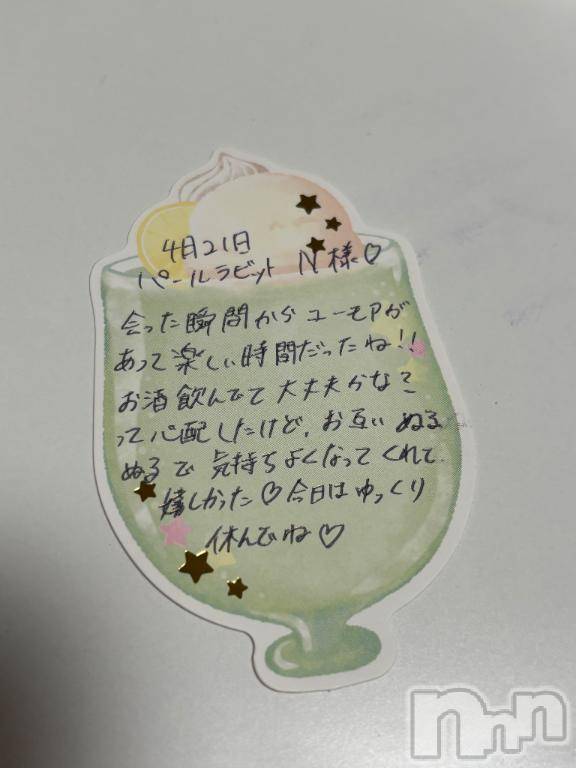 4月21日
パールラビット N様♡
会った瞬間からユーモアが
あって楽しい時間だったね!!
お酒飲んでて大丈夫かな?
って心配したけど、お互いぬる
ぬるで気持ちよくなってくれて
嬉しかった♡今日はゆっくり
休んでね♡
nnn